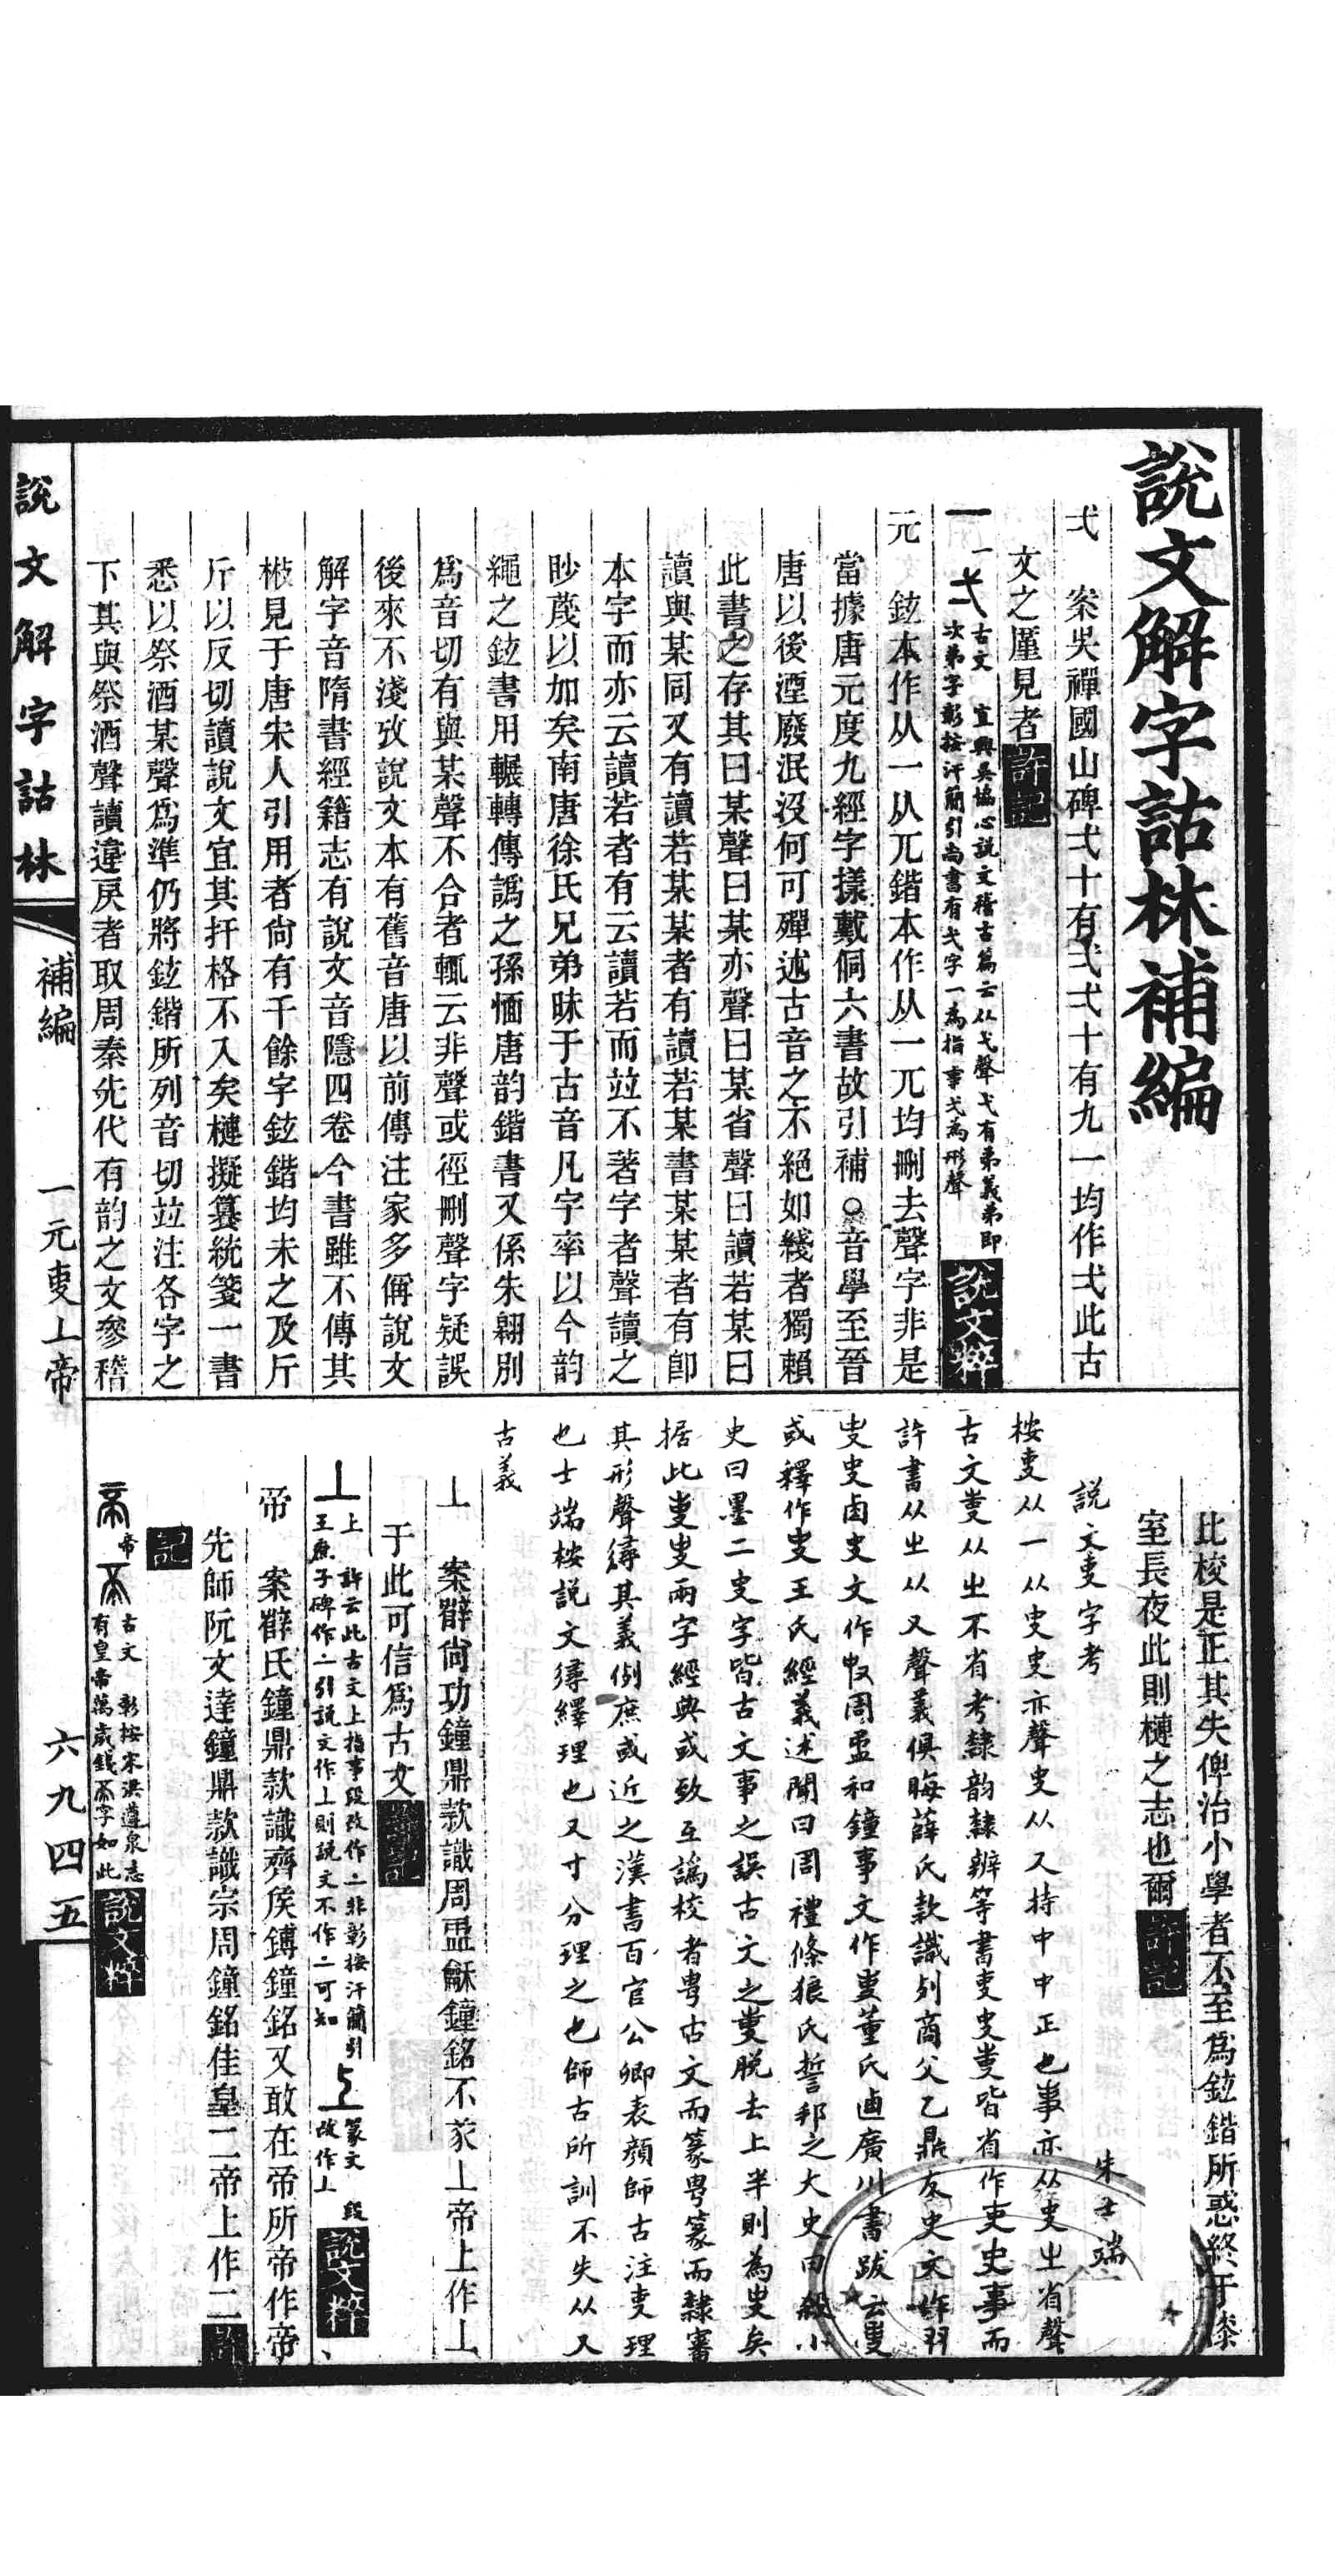 說文解字詁林補編
弌　案吳禪國山碑弌十有弌弌十有九一均作弌此古
文之廑見者許記
一　一弌古文　宜興吳協心說文稽古篇云从弋聲弋有弟義弟即
次弟字彰按汗簡引尚書有弌字一為指事弌為形聲　說文粹
元　鉉本作从一从兀鍇本作从一兀均刪去聲字非是
當據唐元度九經字㨾戴侗六書故引補○音學至晉
唐以後湮廢泯沒何可殫述古音之不絕如綫者獨賴
此書之存其曰某聲曰某亦聲曰某省聲曰讀若某曰
讀與某同又有讀若某某者有讀若某書某某者有卽
本字而亦云讀若者有云讀若而竝不著字者聲讀之
眇蔑以加矣南唐徐氏兄弟昧于古音凡字率以今韵
繩之鉉書用輾轉傳譌之孫愐唐韵鍇書又係朱翱別
爲音切有與某聲不合者輒云非聲或徑刪聲字疑誤
後來不淺攷說文本有舊音唐以前傳注家多偁說文
解字音隋書經籍志有說文音隱四卷今書雖不傳其
散見于唐宋人引用者尙有千餘字鉉鍇均未之及斤
斤以反切讀說文宜其扞格不入矣槤擬纂統箋一書
悉以祭酒某聲爲準仍將鉉鍇所列音切竝注各字之
下其與祭酒聲讀違戾者取周秦先代有韵之文參稽
比校是正其失俾治小學者不至爲鉉鍇所惑終于漆
室長夜此則槤之志也爾許記
說文吏字考　朱士端
桉吏从一从史史亦聲史从又持中中正也事亦从史㞢省聲
古文叓从㞢不省考隸韵隸辨等書吏史叓皆省作吏史事而
許書从㞢从又聲義俱晦薛氏款識列商父乙鼎友史文作
史史卣史文作周盄和鐘事文作董氏逌廣川書跋云
或釋作史王氏經義述聞曰周禮條狼氏誓邦之大史曰殺小
史曰墨二史字皆古文事之誤古文之叓脫去上半則為史矣
据此叓史兩字經典或致互譌校者粤古文而篆粤篆而隸審
其形聲㝷其義例庶或近之漢書百官公卿表顏師古注吏理
也士端桉說文㝷繹理也又寸分理之也師古所訓不失从又
古義
丄　案辥尙功鐘鼎款識周盄龢鐘銘不㒸丄帝上作丄
于此可信爲古文許記
丄　上　許云此古文上指事段改作二非彰按汗簡引
王庶子碑作二引說文作丄則說文不作二可知　篆文　段
改作丄　說文粹
帝　案辥氏鐘鼎款識齊侯鎛鐘銘又敢在帝所帝作帝
先師阮文達鐘鼎款識宗周鐘銘隹皇二帝上作二許
記
帝　帝　古文　彰按宋洪遵泉志
有皇帝萬歲錢字如此　說文粹
說文解字詁林　補編　一元吏丄帝　六九四五